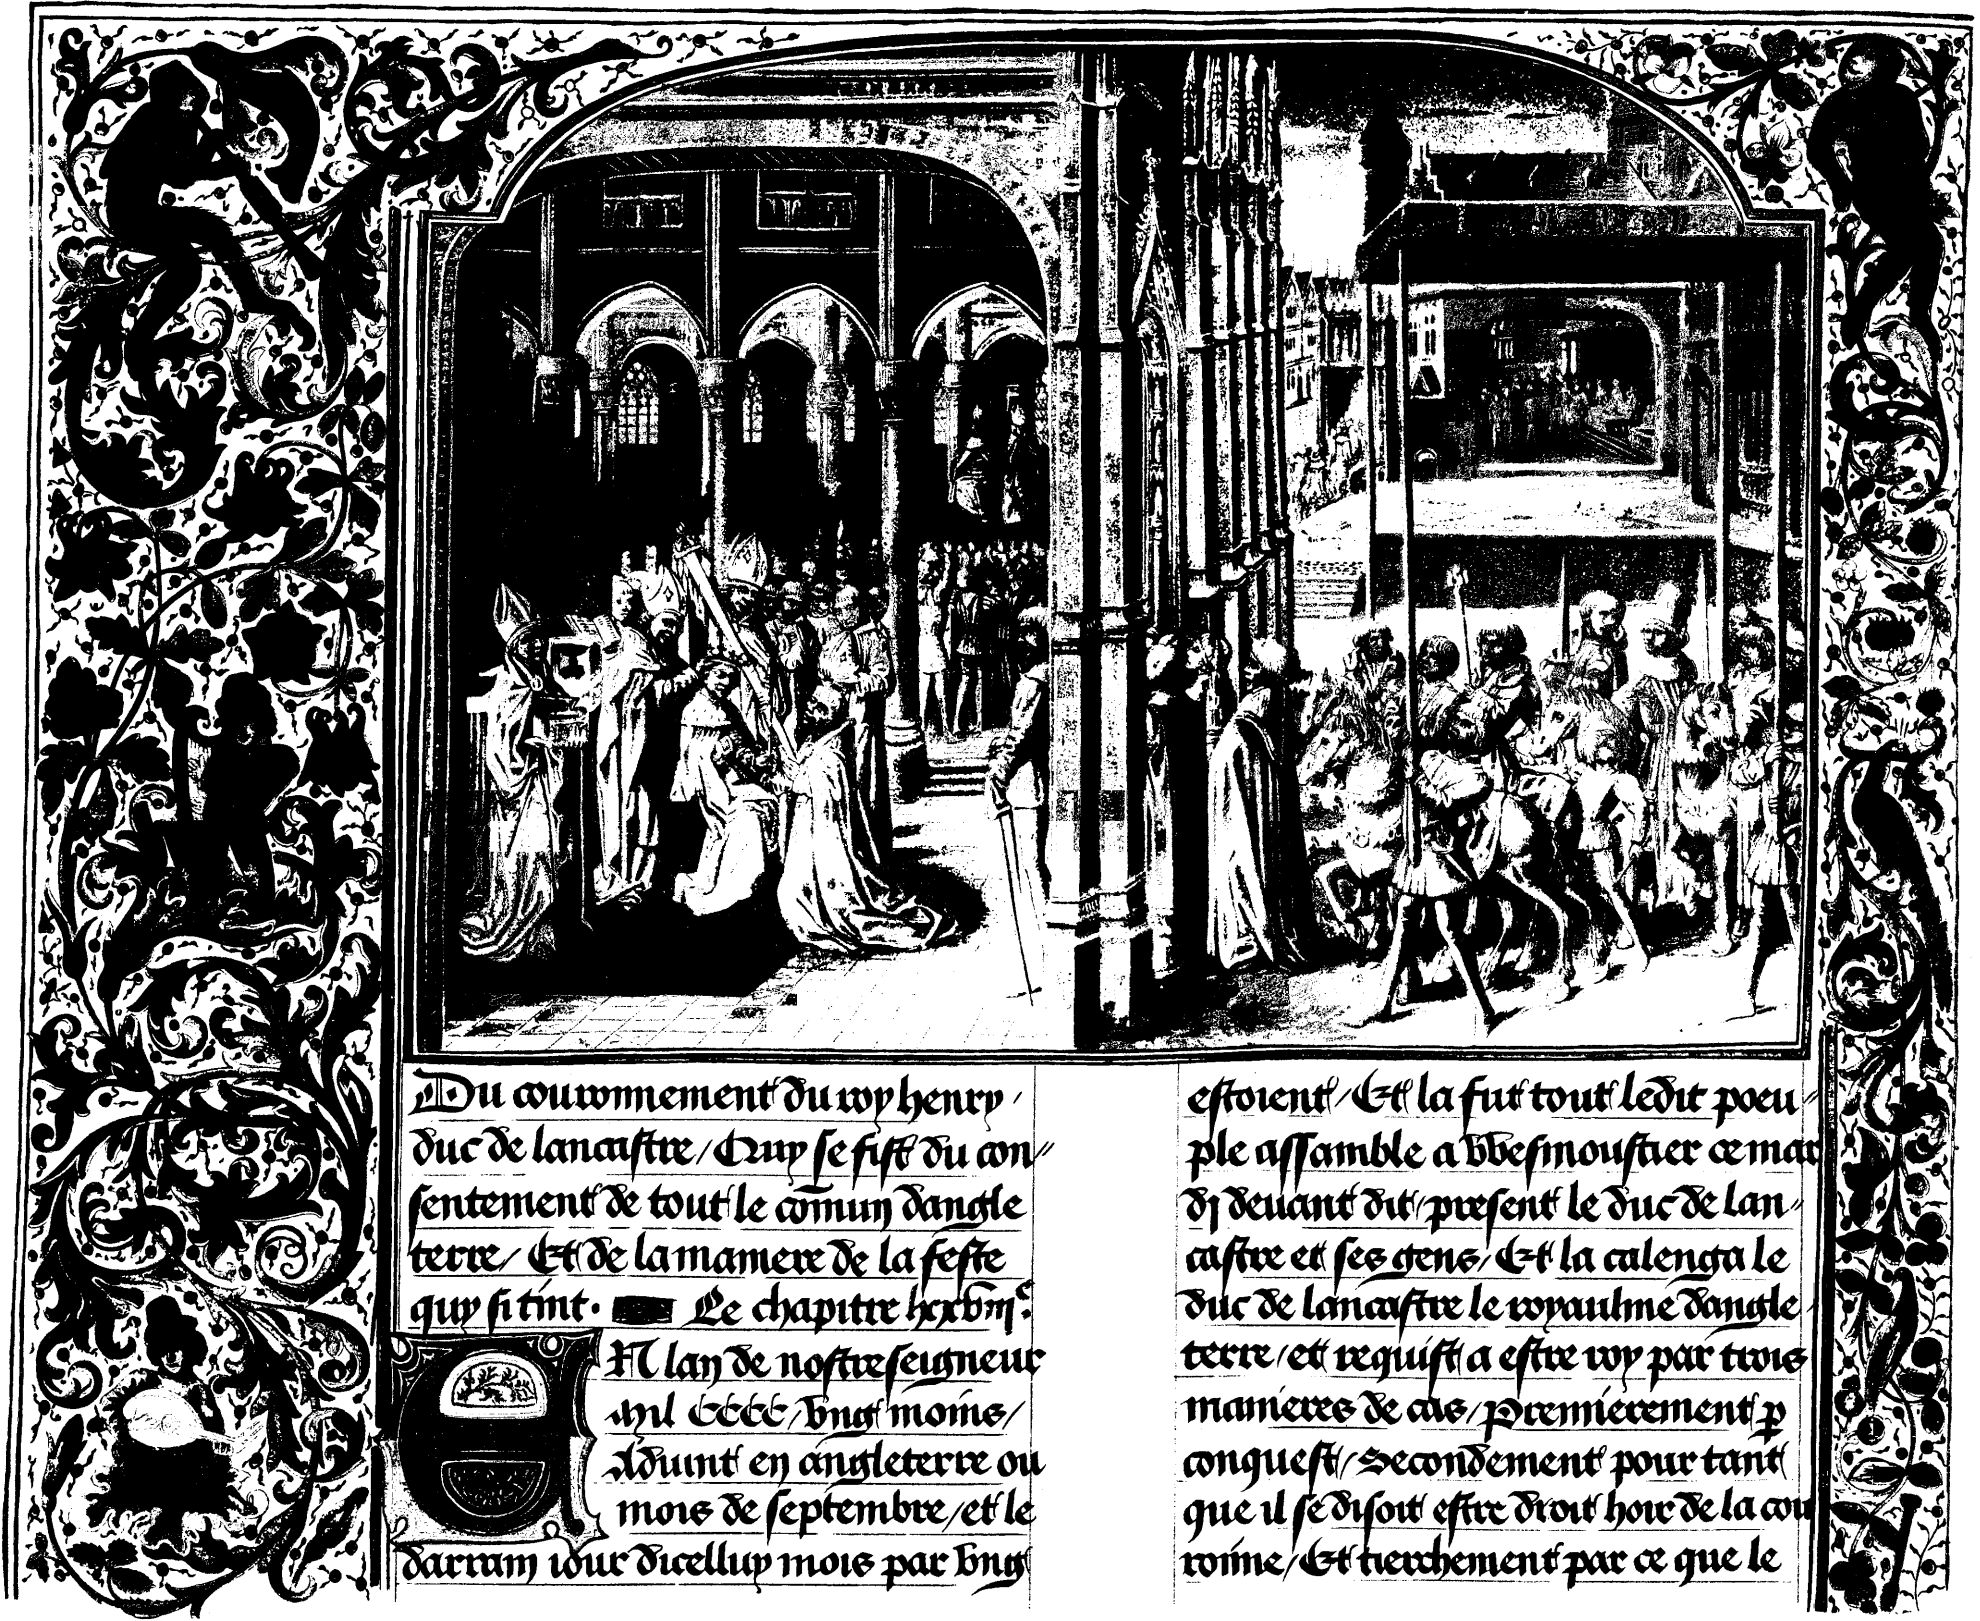 Du couronnement du roy henry
duc de lancastre / Quy se fist du con〃
sentement de tout le cōmun dangle
terre / Et de la maniere de la feste
quy si tint. Le chapitre lxxviijᵉ:
EN lan de nostre seigneur
Mil CCCC / vng moins /
Aduint en angleterre ou
mois de septembre / et le
darrain iour dicelluy mois par vng
estoient / Et la fut tout ledit poeu〃
ple assamble a Wesmoustier ce mar
dj deuant dit / present le duc de lan〃
castre et ses gens / Et la calenga le
duc de lancastre le royaulme dangle
terre / et requist a estre roy par trois
manieres de cas / Premierement ꝑ
conquest / Secondement pour tant
que il se disoit estre droit hoir de la cou
ronne / Et tierchement par ce que le